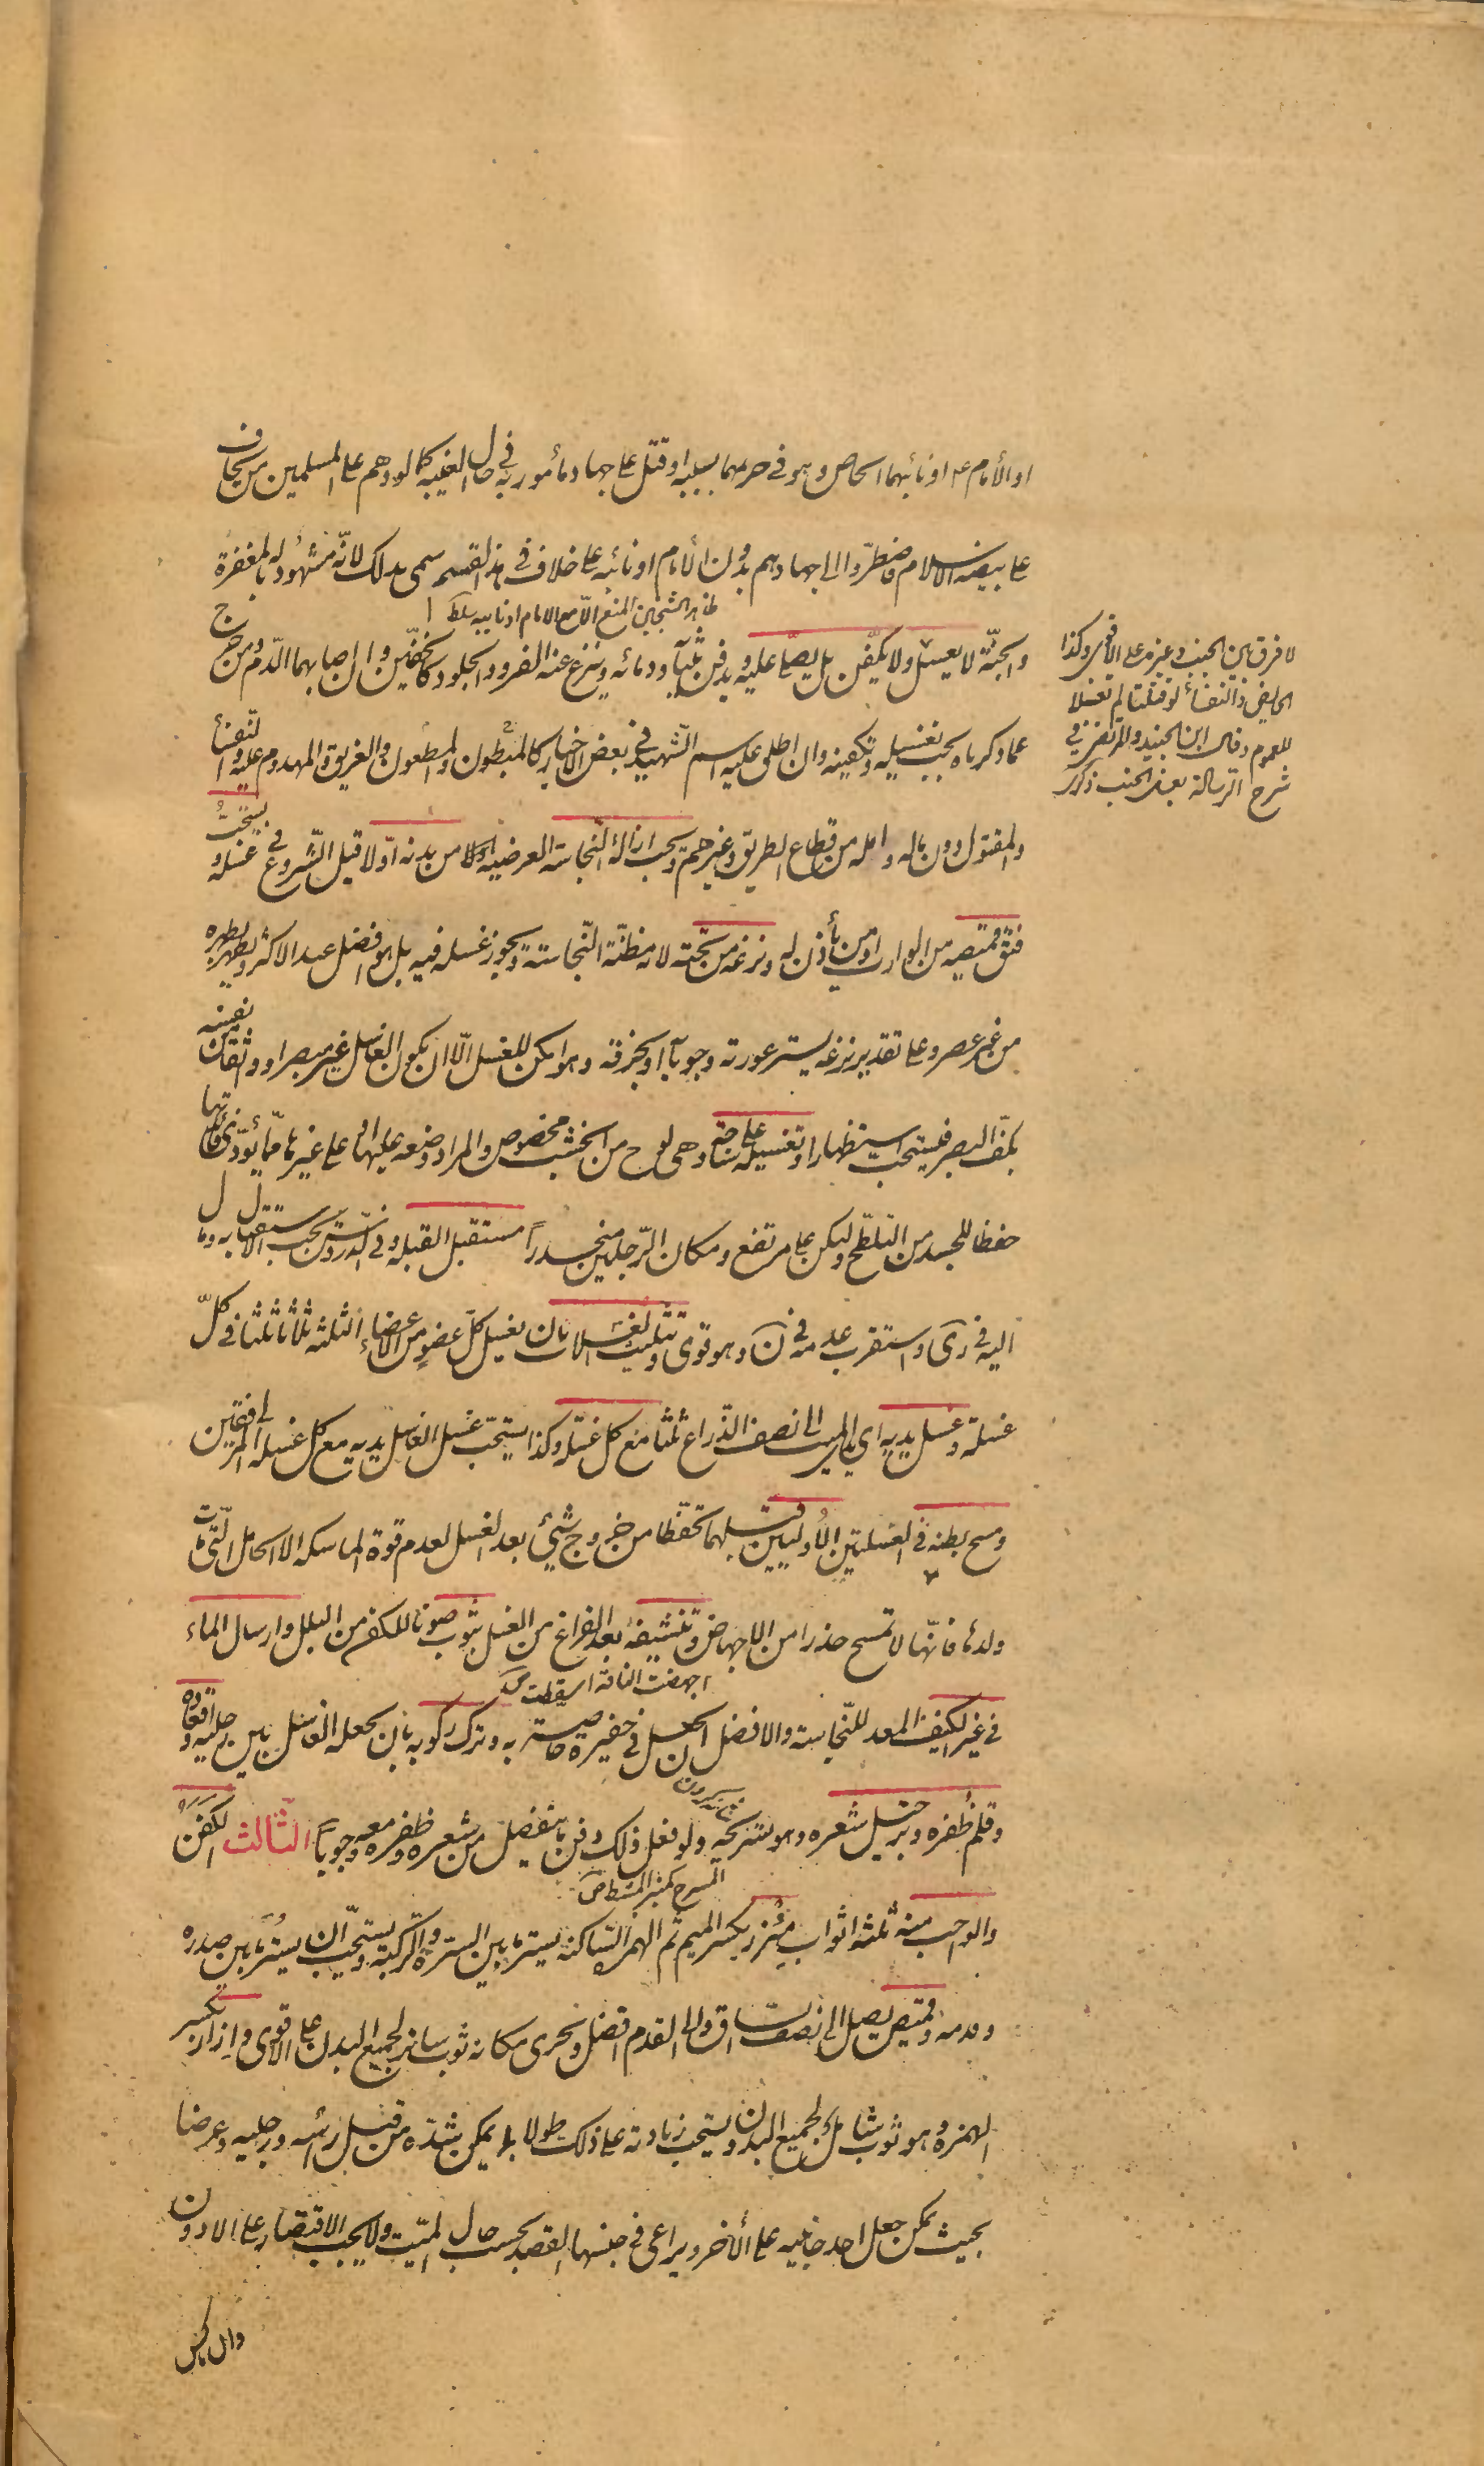 او الأمام ع او نائبهما الخاص وهو في حزبهما بسببه او قتل على جهاد مأمور به في حال الغيبه كما لو دهم على المسلمين من يخاف
على بيضة الاسلام فاضطرّوا الى جهادهم بدون الامام او نائبه على خلاف في هذا القسم سمى بذلك لانّه مشهود له بالمغفرة
ظاهر الشيخين المنع الّا مع الامام او نايبه
والجنّة لا يغسل ولا يكفّن بل يصلّى عليه ويدفن بثيابه ودمائه وينزع عنه الفرو والجلود كالخفّين وان اصابهما الدّم ومن خرج
لا فرق بين الجنب وغيره على الاقوى وكذا
الحايض والنفساء لو قتلتا لم تغسلا
للعموم وقال ابن الجنيد والمرتضى في
شرح الرسالة يغسل الجنب ذكرى
عما ذكرناه يجب تغسيله وتكفينه وان اطلق عليه اسم الشّهيد في بعض الاخبار كالمبطون والمطعون والغريق والمهدوم عليه والنفساء
والمقتول دون ماله واهله من قطاع الطريق وغيرهم ويجب ازالة النّجاسة العرضيه من بدنه اوّلا قبل الشّروع في غسله ويستحبّ
فتق قميصه من الوارث او من يأذن له ونزعه من تحته لانه مظنّة النّجاسة ويجوز غسله فيه بل هو افضل عند الاكثر ويطهر بطهره
من غير عصر وعلى تقدير نزعه يستر عورته وجوبا به او بخرقة وهو امكن للغسل الّا ان يكون الغاسل غير مبصر او وثق من نفسه
بكفّ البصر فيستحب استظهارا وتغسيله على ساجة وهى لوح من الخشب مخصوص والمراد وضعه عليها او على غيرها ممّا يؤدّى فائدتها
حفظا للجسد من التلطّخ وليكن على مرتفع ومكان الرّجلين منحدراً مستقبل القبلة وفي الدروس يجب الاستقبال به ومال
اليه في رى واستقرب عدمه في ن وهو قوى وتثليث الغسلات بان يغسل كلّ عضو من الاعضاء الثلثه ثلاثا ثلثا في كلّ
غسلة وغسل يديه اى يدي الميت الى نصف الذّراع ثلثا مع كل غسله وكذا يستحبّ غسل الغاسل يديه مع كل غسله الى المرفقين
ومسح بطنه في الغسلتين الاُوليين قبلهما تحفّظا من خروج شئ بعد الغسل لعدم قوة الماسكه الا الحامل الّتى مات
ولدها فانّها لا تمسح حذرا من الاجهاض وتنشيفه بعد الفراغ من الغسل بثوب صونا للكفن من البلل وارسال الماء
اجهضت الناقة اسقطت
في غير الكنيف المعد للنّجاسة والافضل ان يجعل في حفيرة خاصة به وترك ركوبه بان يجعله الغاسل بين رجليه واقعاده
وقلم ظفره وترجيل شعره وهو تسريحه ولو فعل ذلك دفن ما ينفصل من شعره وظفره معه وجوباً الثّالث الكفن
المسرح كمنبر المشط ص
والواجب منه ثلثة اثواب مئزر بكسر الميم ثم الهمزة السّاكنه يستر ما بين السّرة والرّكبة ويستحبّ ان يستر ما بين صدره
وقدمه وقميص يصل الى نصف السّاق والى القدم افضل ويجزى مكانه ثوب ساتر لجميع البدن على الاقوى وازار بكسر
الهمزة وهو ثوب شامل لجميع البدن ويستحب زيادته على ذلك طولا بما يمكن شدّه من قبل رأسه ورجليه وعرضا
بحيث يمكن جعل احد جانبيه على الأخر ويراعى في جنسها القصد بحسب حال الميّت ولا يجب الاقتصار على الادون
وان ماكس